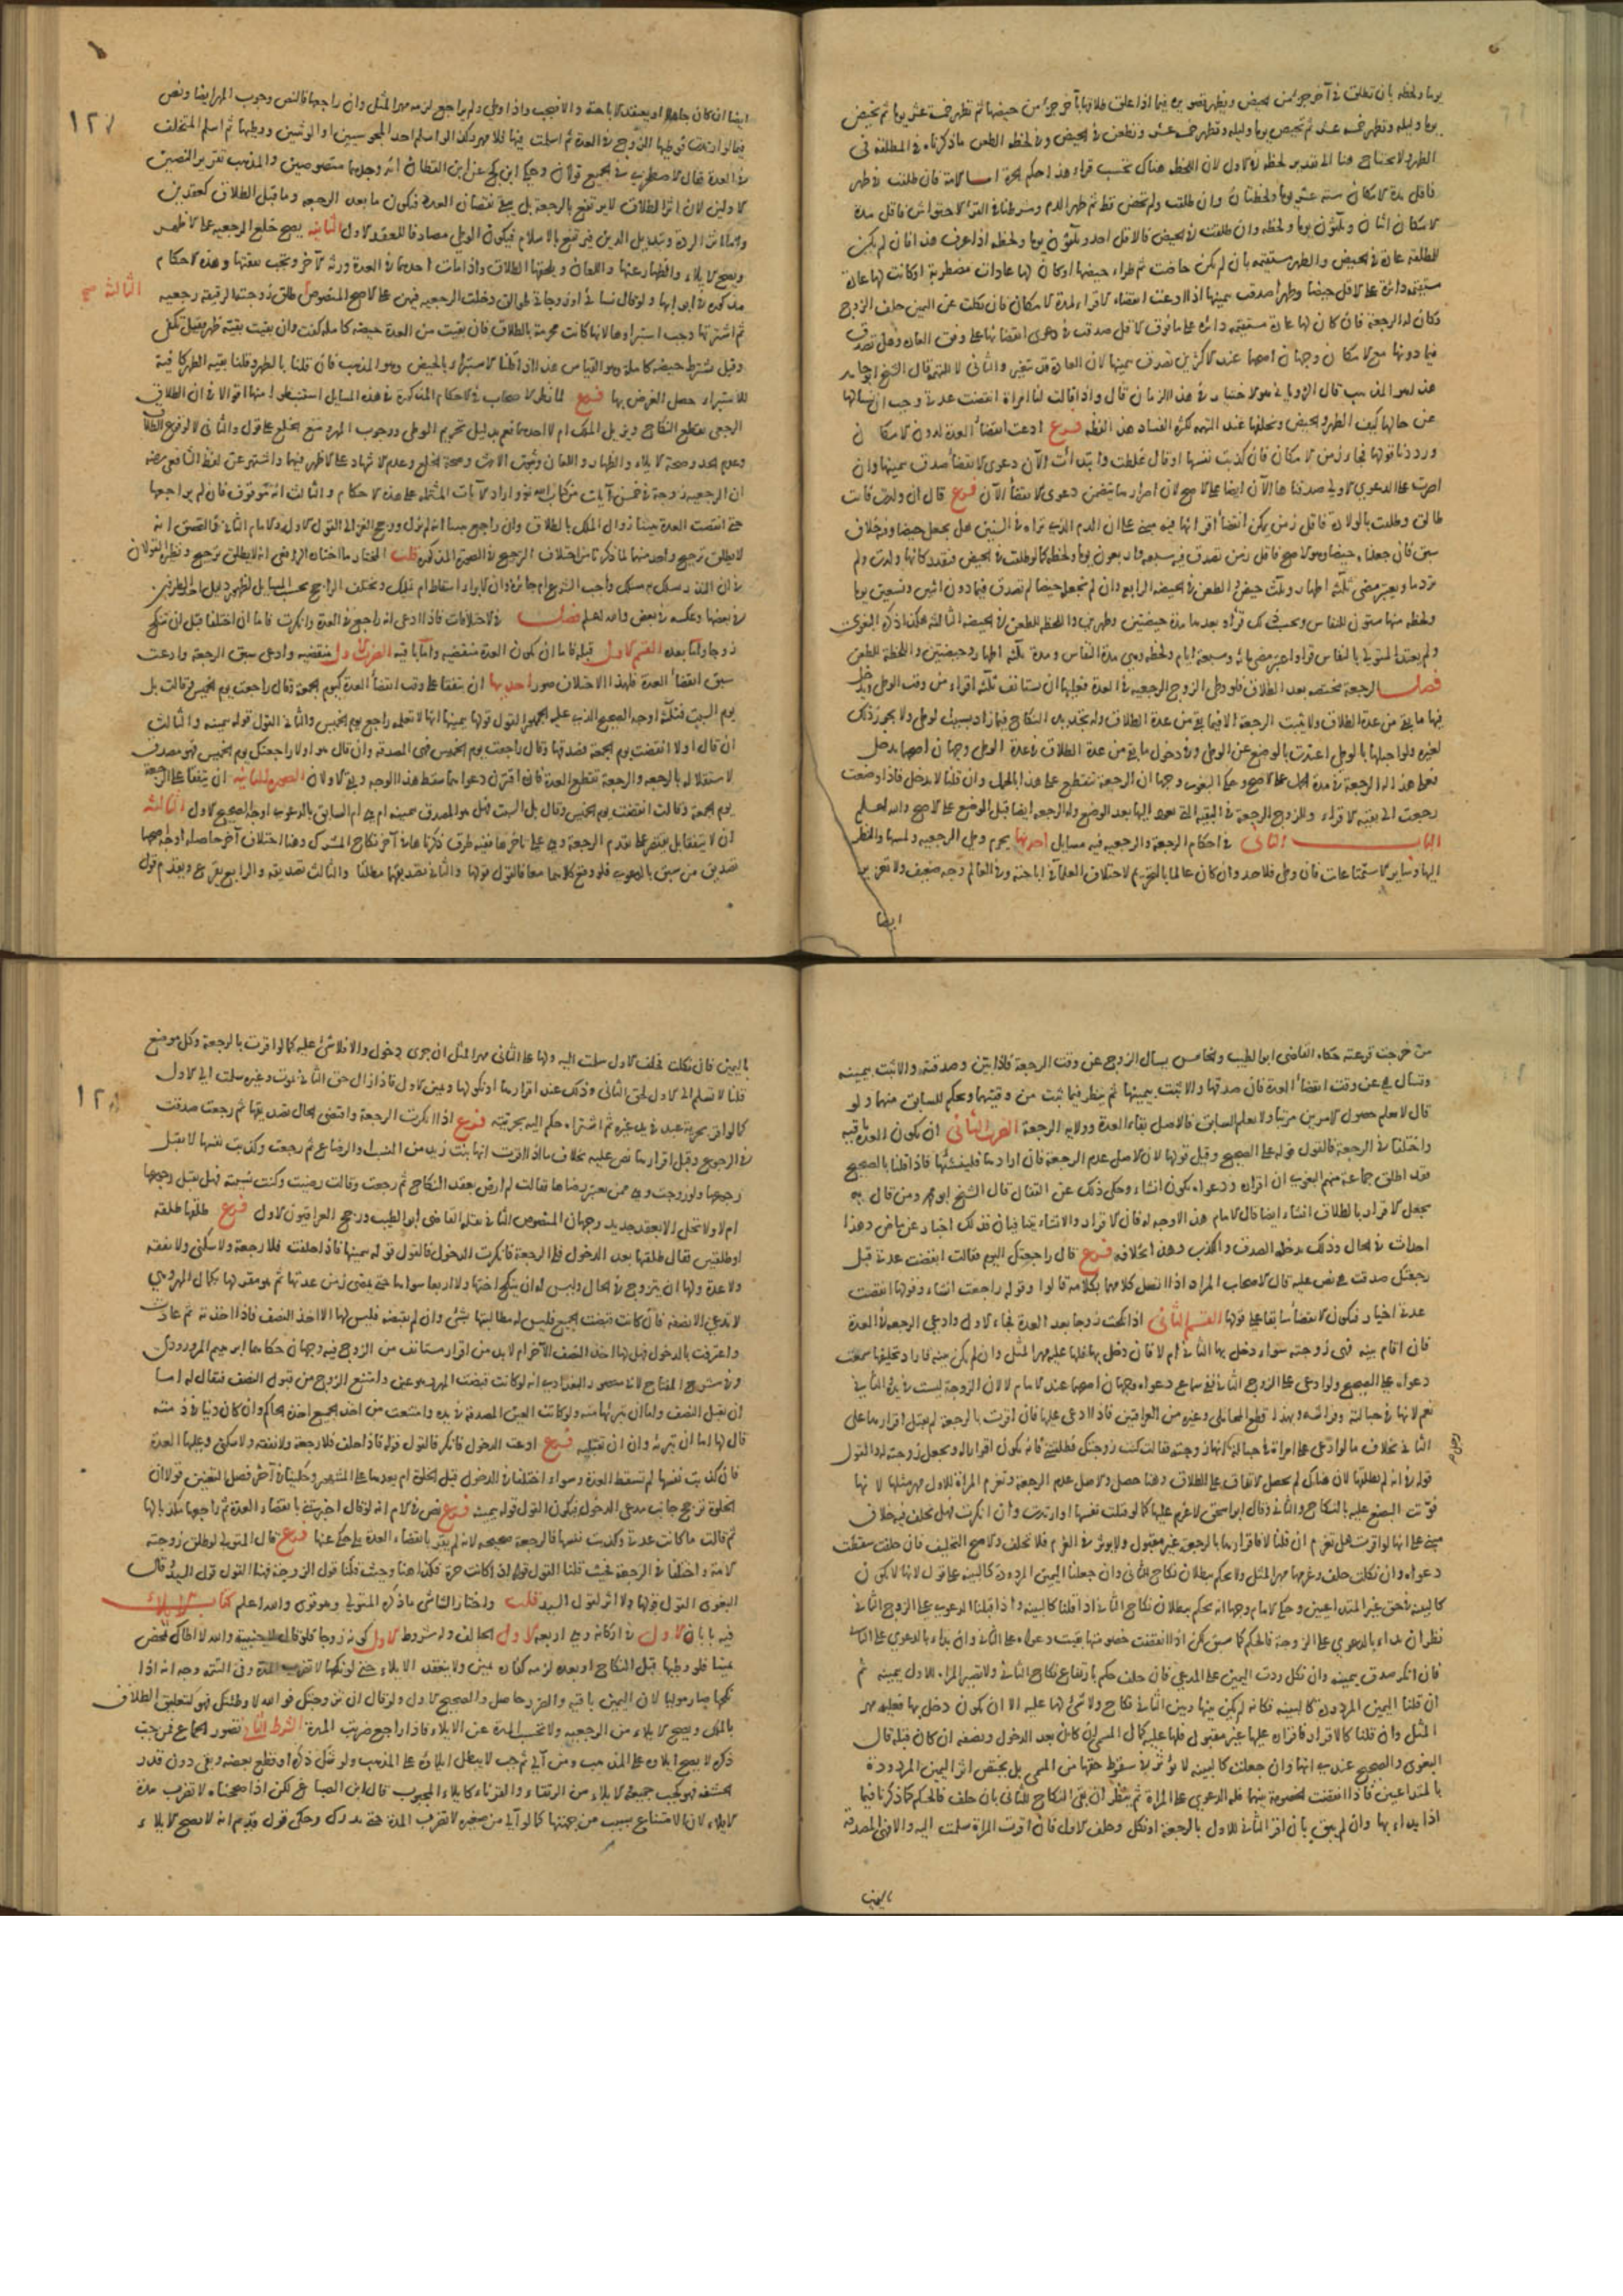 يوما ولحظه بان تطلق في آخر جزء من الحيض
يوما وليله وتطهر خمسة عشر ثم تحيض يوما وليله وتطهر خمسة عشر وتطعن في الحيض وفي لحظه الطعن ما ذكرناه في المطلقه في
الطهر ولا تحتاج هنا الى تقدير لحظه في الاول لان اللحظه هناك تحسب قراء هذا حكم الحرة اما الامة فان طلقت في طهر
فاقل مدة الامكان ستة عشر يوما ولحظتان وان طلقت ولم تحض قط ثم ظهر الدم وشرطنا في القرء الاحتواش فاقل مدة
الامكان اثنان وثلثون يوما ولحظه وان طلقت في الحيض فالاقل احد وثلثون يوما ولحظه اذا عرف هذا فان لم يكن
للمطلقه عادة في الحيض والطهر مستقيمه بان لم تكن حاضت ثم طراء حيضها او كان لها عادات مضطربة او كانت لها عادة
مستقيمه دائرة على الاقل حيضا وطهرا صدقت بيمينها اذا ادعت انقضاء الاقراء لمدة الامكان فان نكلت عن اليمين حلف الزوج
وكان له الرجعة فان كان لها عادة مستقيمه دائره على ما فوق الاقل صدقت في دعوى انقضائها على وفق العاده وهل تصدق
فيما دونها مع الامكان وجهان اصحهما عند الاكثرين تصدق بيمينها لان العادة قد تتغير والثاني لا للتهمه قال الشيخ ابو حامد
هذا هو المذهب قال الروياني هو الاختيار في هذا الزمان قال واذا قالت لنا امراة انقضت عدتي وجب ان نسالها
عن حالها كيف الطهر والحيض ونحلفها عند التهمه لكثرة الفساد هذا لفظه فرع ادعت انقضاء العدة لدون الامكان
ورددنا قولها فجاء زمن الامكان فان كذبت نفسها او قال غلطت وابتدأت الآن دعوى الانقضاء صدقت بيمينها وان
اصرت على الدعوى الاولى صدقناها الآن ايضا على الاصح لان اصرارها يتضمن دعوى الانقضاء الآن فرع قال ان ولدت فانت
طالق وطلقت بالولادة فاقل زمن يمكن انقضاء اقرائها فيه مبني على ان الدم الذي تراه في الستين هل يجعل حيضا وفيه خلاف
سبق فان جعلناه حيضا وهو الاصح فاقل زمن تصدق فيه سبعه واربعون يوما ولحظه كما لو طلقت في الحيض فتقدر كانها ولدت ولم
تر دما ويعتبر مضي ثلثة اطهار
ولحظه منها ستون للنفاس
ولم يعتد المتولي بالنفاس قراء واعتبر مضي مائه وسبعه ايام ولحظه وهي مدة النفاس ومدة ثلثة اطهار وحيضتين واللحظة للطعن
فصل الرجعة مختصه بعدة الطلاق فلو وطئ الزوج الرجعيه في العدة فعليها ان تستانف ثلثه اقراء من وقت الوطئ ويدخل
فيها ما بقي من عدة الطلاق ولا تثبت الرجعة الا فيما بقي من عدة الطلاق وله تجديد النكاح فيما زاد بسبب الوطئ ولا يجوز ذلك
لغيره ولو احبلها بالوطئ اعتدت بالوضع عن الوطئ وفي دخول ما بقي من عدة الطلاق في عدة الوطئ وجهان اصحهما يدخل
فعلى هذا له الرجعة في مدة الحمل على الاصح وحكى البغوي وجها ان الرجعة تنقطع على هذا بالحمل وان قلنا لا يدخل فاذا وضعت
رجعت الى بقيه الاقراء وللزوج الرجعة في البقيه التي تعود اليها بعد الوضع وله الرجعه ايضا قبل الوضع على الاصح والله اعلم
الباب الثاني في احكام الرجعة والرجعيه فيه مسايل احدها يحرم وطئ الرجعيه ولمسها والنظر
اليها وساير الاستمتاعات فان وطئ فلا حد وان كان عالما بالتحريم لاختلاف العلماء في اباحته وفي العالم وجه ضعيف ولا تعزير
ايضا
١٢٧
ايضا ان كان جاهلا او يعتقد الاباحة والا فيجب واذا وطئ ولم يراجع لزمه مهر المثل وان راجعها فالنص وجوب المهر ايضا ونص
فيما لو ارتدت فوطيها الزوج في العدة ثم اسلمت فيها فلا مهر وكذا لو اسلم احد المجوسيين او الوثنيين ووطيها ثم اسلم المتخلف
في العدة فقال الاصطخري في الجميع قولان
الاولين لان اثر الطلاق لا يرتفع بالرجعة بل يبقى نقصان العدد فيكون ما بعد الرجعه وما قبل الطلاق كعقدين
واما اثر الردة وتبديل الدين فيرتفع بالاسلام فيكون الوطئ مصادفا للعقد الاول الثانيه يصح خلع الرجعيه على الاظهر
ويصح الايلاء والظهار عنها واللعان ويلحقها الطلاق واذا مات احدهما في العدة ورثه الآخر وتجب نفقتها وهذه الاحكام
مذكورة في ابوابها ولو قال نسائي او زوجاتي طوالق دخلت الرجعيه فيهن على الاصح المنصوص طلق زوجته الرقيقة رجعيه
الثالثة صح
ثم اشتراها وجب استبراؤها لانها كانت محرمة بالطلاق فان بقيت من العدة حيضه كاملة كفت وان بقيت بقية طهر فقيل تكفي
وقيل يشترط حيضه كاملة وهو القياس هذا اذا قلنا الاستبراء بالحيض وهو المذهب فان قلنا بالطهر وقلنا بقيه الطهر كافية
للاستبراء حصل الغرض بها فرع لما نظر الاصحاب في الاحكام المذكورة في هذه المسايل استنبطوا منها اقوالا في ان الطلاق
الرجعي يقطع النكاح ويزيل الملك ام لا احدها نعم بدليل تحريم الوطئ ووجوب المهر ومنع الخلع على قول والثاني لا لوقوع الطلاق
وعدم الحد وصحة الايلاء والظهار واللعان وثبوت الارث وصحة الخلع وعدم الاشهاد على الاظهر فيها واشتهر عن لفظ الشافعي رضه
ان الرجعيه زوجة في خمس آيات من كتاب الله تعالى واراد الآيات المشتمله على هذه الاحكام والثالث انه موقوف فان لم يراجعها
حتى انقضت العدة تبينا زوال الملك بالطلاق وان راجع تبينا انه لم يزل ورجح الغزالي القول الاول والامام الثاني والتحقيق انه
لا يطلق ترجيح واحد منها
فصل في الاختلافات فاذا ادعى انه راجع في العدة وانكرت فاما ان اختلفا قبل ان تنكح
زوجا واما بعده القسم الاول قبله فاما ان تكون العدة منقضيه واما باقيه الضرب الاول منقضيه وادعى سبق الرجعة وادعت
سبق انقضاء العدة فلهذا الاختلاف صور احديها ان يتفقا على وقت انقضاء العدة كيوم الجمعة وقال راجعت يوم الخميس وقالت بل
يوم السبت فثلثة اوجه الصحيح الذي عليه الجمهور القول قولها بيمينها انها لا تعلمه راجع يوم الخميس والثاني القول قوله بيمينه والثالث
ان قال اولا
لاستقلاله بالرجعه والرجعة تقطع العدة فان اقترن دعواهما سقط هذا الوجه وبقي الاولان الصوره الثانية ان يتفقا على الرجعة
يوم الجمعة وقالت انقضت يوم الخميس وقال بل السبت
ان لا يتفقا بل يقتصر على تقدم الرجعة وهي على تاخرها ففيه طرق ذكرناها في آخر نكاح المشرك وهنا اختلاف آخر حاصله اوجه اصحها
تصديق من سبق بالدعوى فلو وقع كلامهما معا فالقول قولها والثاني تصديقها مطلقا والثالث تصديقه والرابع يقرع ويقدم قول
من خرجت قرعته حكاه القاضي ابو الطيب والخامس يسال الزوج عن وقت الرجعة فاذا بين وصدقته والا ثبت بيمينه
وتسال هي عن وقت انقضاء العدة فان صدقها والا ثبت بيمينها ثم ينظر فيما ثبت من وقتيهما ويحكم للسابق منهما ولو
قال لا نعلم حصول الامرين مرتبا ولا نعلم السابق فالاصل بقاء العدة وولاية الرجعة الضرب الثاني ان تكون العدة باقيه
واختلفا في الرجعة فالقول قوله على الصحيح وقيل قولها لان الاصل عدم الرجعة فان ارادها فلينشئها فاذا قلنا بالصحيح
فقد اطلق جماعة منهم البغوي ان اقراره ودعواه يكون انشاء وحكي ذلك عن القفال قال الشيخ ابو محمد ومن قال به
يجعل الاقرار بالطلاق انشاء ايضا قال الامام هذا لا وجه له فان الاقرار والانشاء يتنافيان فذلك اخبار عن ماض وهذا
احداث في الحال وذلك يدخله الصدق والكذب وهذا بخلافه فرع قال راجعتك اليوم فقالت انقضت عدتي قبل
رجعتك صدقت هي نص عليه قال الاصحاب المراد اذا اتصل كلامها بكلامه قالوا وقوله راجعت انشاء وقولها انقضت
عدتي اخبار فيكون الانقضاء سابقا على قولها القسم الثاني اذا نكحت زوجا بعد العدة فجاء الاول وادعى الرجعة في العدة
فان اقام بينه فهي زوجته سواء دخل بها الثاني ام لا فان دخل بها فلها عليه مهر المثل وان لم يكن بينه فاراد تحليفها سمعت
دعواه على الصحيح ولو ادعى على الزوج الثاني ففي سماع دعواه وجهان اصحهما عند الامام لا لان الزوجة ليست في يده والثاني
نعم لانها في حبالته وفراشه وبهذا قطع المحاملي وغيره من العراقيين فاذا ادعى عليها فان اقرت بالرجعة لم يقبل اقرارها على
الثاني بخلاف ما لو ادعى على امراة في حبالة رجل انها زوجته فقالت كنت زوجتك فطلقتني فانه يكون اقرارا له وتجعل زوجته له والقول
قوله في انه لم يطلقها لان هناك لم يحصل الاتفاق على الطلاق وهنا حصل والاصل عدم الرجعة وتغرم المراة للاول مهر مثلها لانها
فوتت البضع عليه بالنكاح والثاني وقال ابو اسحق لا غرم عليها كما لو قتلت نفسها او ارتدت وان انكرت فهل تحلف فيه خلاف
مبني على انها لو اقرت هل تغرم ان قلنا لا فاقرارها بالرجعة غير مقبول ولا يوثر في الغرم فلا تحلف والاصح التحليف فان حلفت سقطت
دعواه وان نكلت حلف وغرمها مهر المثل ولا يحكم ببطلان نكاح الثاني وان جعلنا اليمين المردودة كالبينه على قول لانها لا تكون
كالبينه في حق غير المتداعيين وحكى الامام وجها انه يحكم ببطلان نكاح الثاني اذا قلنا كالبينه واذا قبلنا الدعوى على الزوج الثاني
نظر ان بداء بالدعوى على الزوجة فالحكم كما سبق لكن اذا انقضت خصومتها بقيت دعواه على الثاني وان بداء بالدعوى على الثاني
فان انكر صدق بيمينه وان نكل ردت اليمين على المدعي فان حلف حكم بارتفاع نكاح الثاني ولا تصير المراة للاول بيمينه ثم
ان قلنا اليمين المردودة كالبينه فكانه لم يكن بينها وبين الثاني نكاح ولا شئ لها عليه الا ان يكون دخل بها فعليه مهر
المثل وان قلنا كالاقرار فاقراره عليها غير مقبول فلها عليه كمال المسمى ان كان بعد الدخول ونصفه ان كان قبله قال
البغوي والصحيح عندي انها وان جعلت كالبينه لا توثر في سقوط حقها من المسمى بل يختص اثر اليمين المردودة
بالمتداعيين فاذا انقضت الخصومة بينهما فله الدعوى على المراة ثم ينظر ان بقي النكاح للثاني بان حلف فالحكم كما ذكرنا فيما
اذا بداء بها وان لم يبق بان اقر الثاني للاول بالرجعة او نكل وحلف الاول فان اقرت المراة سلمت اليه والا فهي المصدقة
باليمين
١٢٨
باليمين فان نكلت فحلف الاول سلمت اليه ولها على الثاني مهر المثل ان جرى دخول والا فلا شئ عليه كما لو اقرت بالرجعة وكل موضع
قلنا لا تسلم الى الاول لحق الثاني وذلك عند اقرارها او نكولها ويمين الاول فاذا زال حق الثاني بموت وغيره سلمت الى الاول
كما لو اقر بحرية عبد في يد غيره ثم اشتراه حكم اليه بحريته فرع اذا انكرت الرجعة واقتضى الحال تصديقها ثم رجعت صدقت
في الرجوع وقبل اقرارها نص عليه بخلاف ما اذا اقرت انها بنت زيد من النسب او الرضاع ثم رجعت وكذبت نفسها لا يقبل
رجوعها ولو زوجت وهي ممن يعتبر رضاها فقالت لم ارض بعقد النكاح ثم رجعت وقالت رضيت وكنت نسيته فهل يقبل رجوعها
ام لا ولا تحل الا بعقد جديد وجهان المنصوص الثاني نقله القاضي ابو الطيب ورجح العراقيون الاول فرع طلقها طلقه
او طلقتين فقال طلقتها بعد الدخول فلي الرجعة فانكرت الدخول فالقول قولها بيمينها فاذا حلفت فلا رجعة ولا سكنى ولا نفقه
ولا عدة ولها ان تتزوج في الحال وليس له ان ينكح اختها ولا اربعا سواها حتى يمضي زمن عدتها ثم هو مقر لها بكمال المهر وهي
لا تدعي الا نصفه فان كانت قبضت الجميع فليس له مطالبتها بشئ وان لم تقبضه فليس لها الا اخذ النصف فاذا اخذته ثم عادت
واعترفت بالدخول فهل لها اخذ النصف الآخر ام لا بد من اقرار مستانف من الزوج فيه وجهان حكاهما ابرهيم المروروذي
وفي شرح المفتاح لابي منصور البغدادي انه لو كانت قبضت المهر وهو عين وامتنع الزوج من قبول النصف فيقال له اما
ان تقبل النصف واما ان تبرئها منه ولو كانت العين المصدقة في يده وامتنعت من اخذ الجميع اخذه الحاكم وان كان دينا في ذمته
قال لها اما ان تبريه وان ان تقبليه فرع ادعت الدخول فانكر فالقول قوله فاذا حلف فلا رجعة ولا نفقه ولا سكنى وعليها العدة
فان كذبت نفسها لم تسقط العدة وسواء اختلفا في الدخول قبل الخلوة ام بعدها على المشهور وحكينا في آخر فصل التعنين قولا ان
الخلوة ترجح جانب مدعي الدخول فيكون القول قوله بيمينه فرع نص في الام انه لو قال اخبرتني بانقضاء العدة ثم راجعها مكذبا لها
ثم قالت ما كانت عدتي انقضت وكذبت نفسها فالرجعة صحيحه لانه لم يقر بانقضاء العدة بل حكى عنها فرع قال المتولي لو طلق زوجته
الامة واختلفا في الرجعة فحيث قلنا القول قوله اذا كانت حرة فكذا هنا وحيث قلنا قول الزوجة فهنا القول قول السيد وقال
البغوي القول قولها ولا اثر لقول السيد قلت واختار الشاشي ما ذكره المتولي وهو قوي والله اعلم كتاب الايلاء
فيه بابان الاول في اركانه وهي اربعه الاول الحالف وله شروط الاول كونه زوجا فلو قال لاجنبية والله لا اطاك تمحض
يمينا فلو وطيها قبل النكاح او بعده لزمه كفارة يمين ولا ينعقد الايلاء حتى لو نكحها لا تضرب المدة وفي التتمه وجه انه اذا
نكحها صار موليا لان اليمين باقيه والضرر حاصل والصحيح الاول ولو قال ان تزوجتك فوالله لا وطئتك فهو كتعليق الطلاق
بالملك ويصح الايلاء من الرجعيه ولا تحتسب المدة عن الايلاء فاذا راجع ضربت المدة الشرط الثاني تصور الجماع فمن جب
ذكره لا يصح ايلاؤه على المذهب ومن آلى ثم جب لا يبطل ايلاؤه على المذهب ولو شل ذكره او قطع بعضه وبقي دون قدر
الحشفه فهو كجب جميعه والايلاء من الرتقاء والقرناء كايلاء المجبوب قال ابن الصباغ لكن اذا صححناه لا تضرب مدة
الايلاء لان الامتناع بسبب من جهتها كما لو آلى من صغيره لا تضرب المدة حتى تدرك وحكى قول قديم انه لا يصح الايلاء